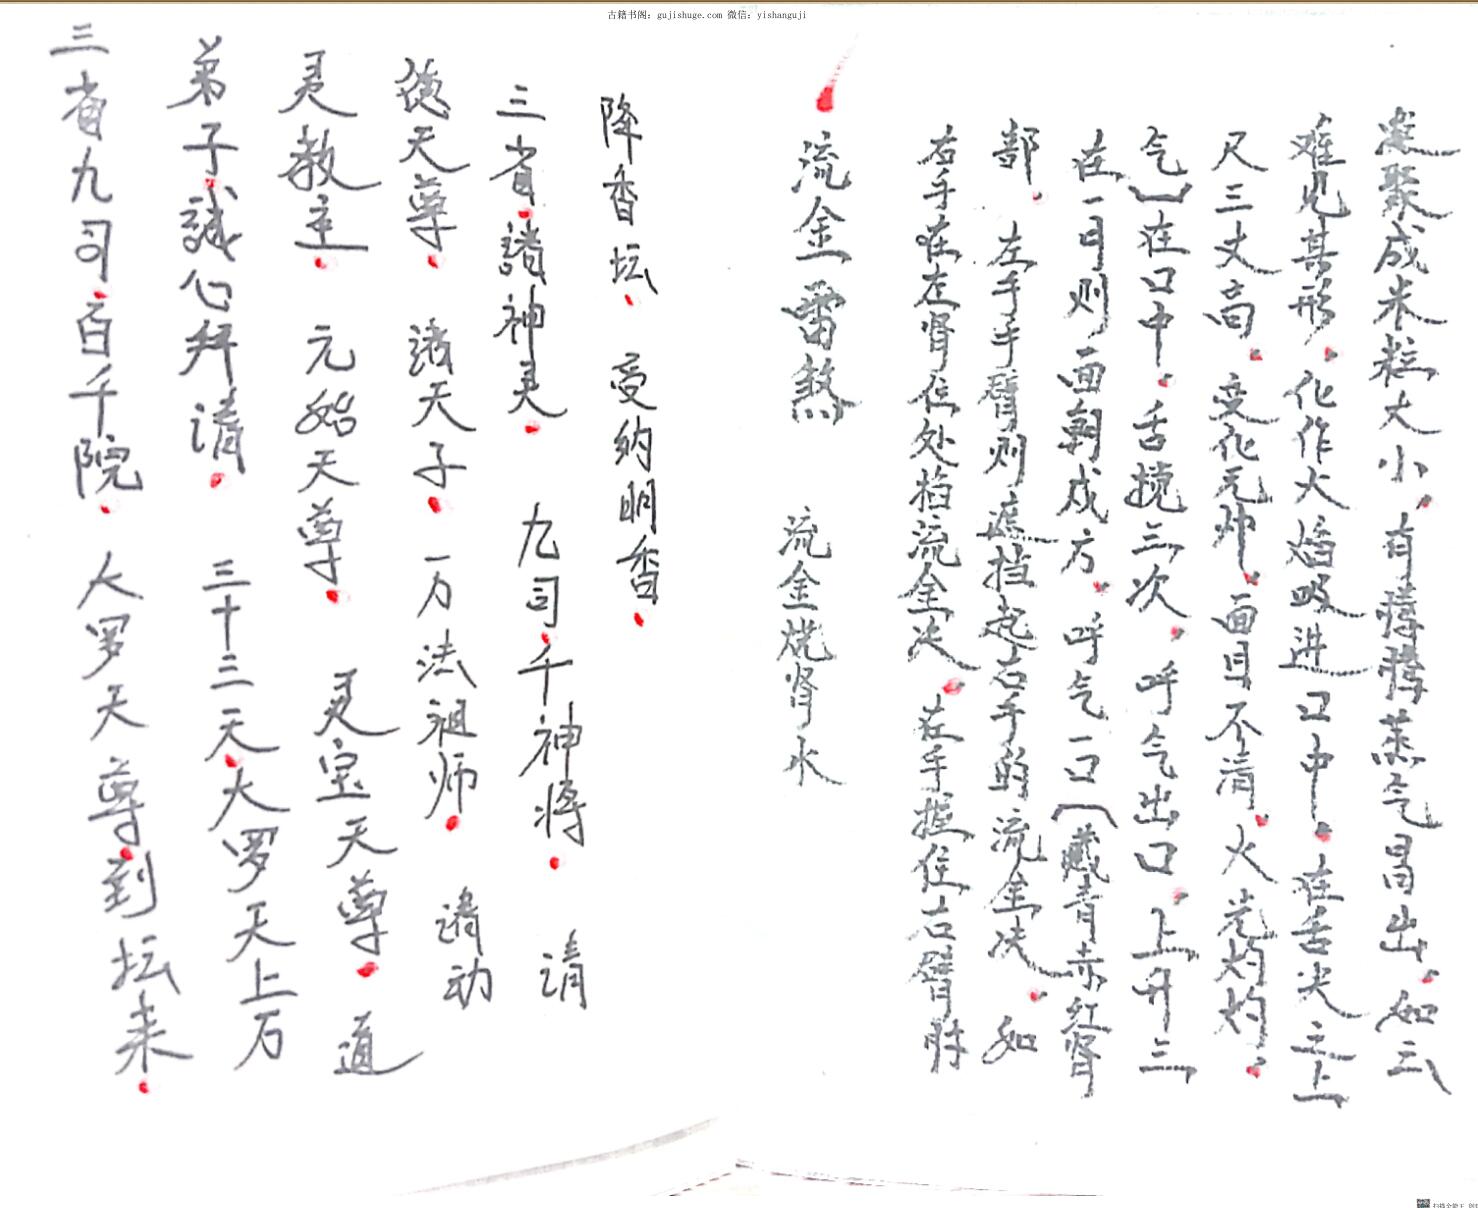 古籍书阁：gujishuge.com 微信：yishanguji
凝聚成米粒大小，有腾腾蒸气冒出。如云
难见其形。化作火焰吸进口中。在舌尖之上
尺三丈高。变化元帅。面目不清。火光灼灼。
气】在口中。舌搅三次。呼气出口。上升三
在一可则面朝戍方。呼气一口【藏青赤红肾
部。左手手臂则遮挡起右手的流金决。如
右手在左肾位处掐流金决。左手握住右臂肘
流金雷煞 流金烧肾水
降香坛。受纳明香。
三省。諸神灵。九司。千神将。请
德天尊。諸天子。一万法祖师。请动
灵教主。元始天尊。灵宝天尊。道
弟子。誠心拜请。三十三天。大罗天上万
三省九司。百千院。大罗天尊。到坛来。